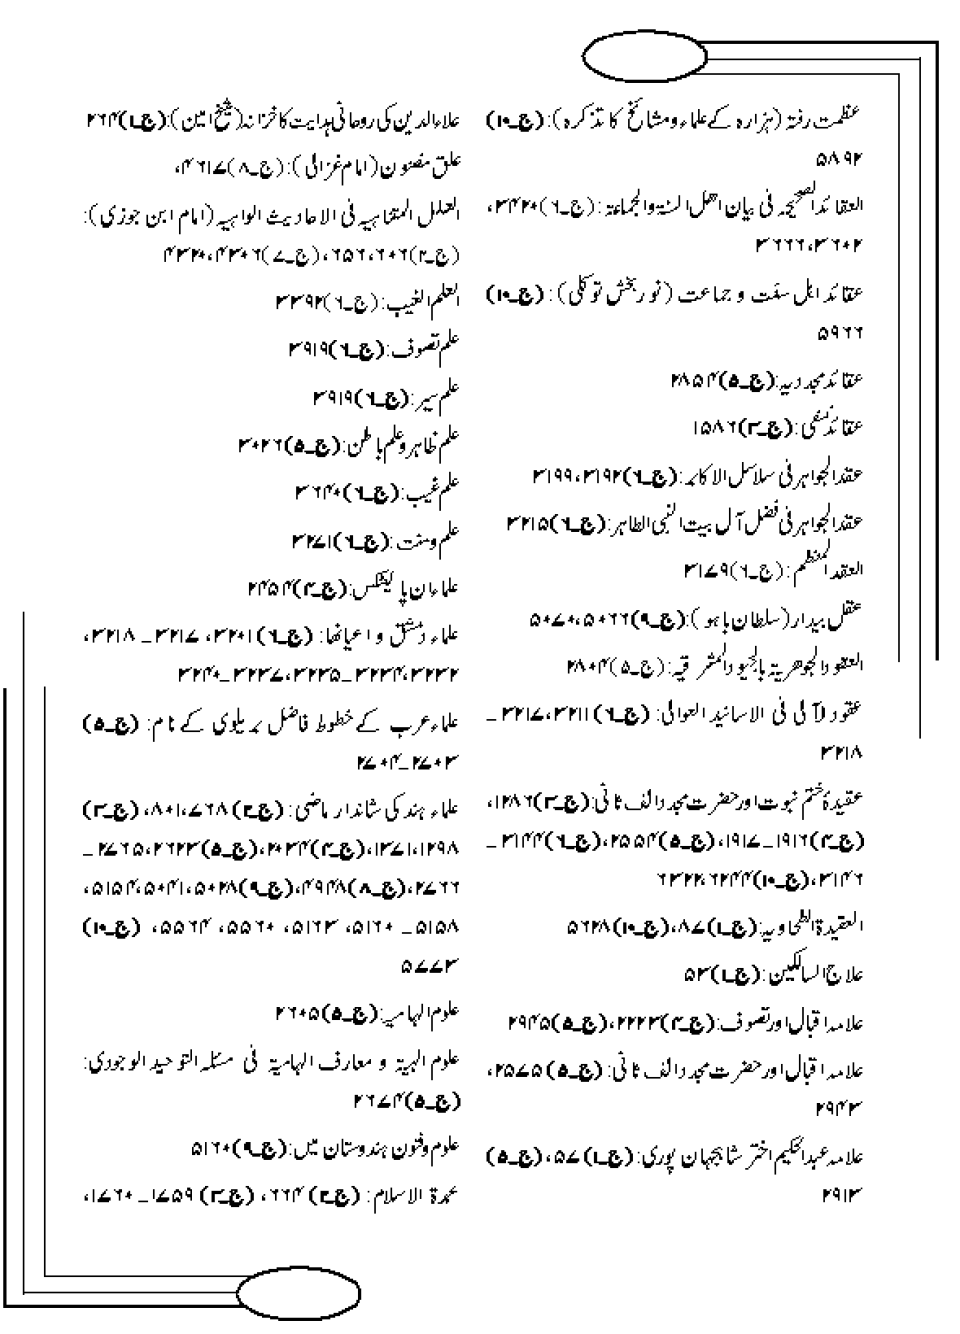 عظمت رفتہ (ہزارہ کے علماء ومشائخ کا تذکرہ): (ج۔۱۰)
۵۸۹۲
العقائد الصحیحہ فی بیان اھل السنۃ والجماعۃ: (ج۔۶) ۳۴۲۰،
۳۶۰۲، ۳۶۶۶
عقائد اہل سنّت و جماعت (نور بخش توکلی): (ج۔۱۰)
۵۹۶۶
عقائد مجددیہ: (ج۔۵) ۲۸۵۴
عقائد نسفی: (ج۔۳) ۱۵۸۶
عقد الجواہر فی سلاسل الاکابر: (ج۔۶) ۳۱۹۲، ۳۱۹۹
عقد الجواہر فی فضل آل بیت النبی الطاہر: (ج۔۶) ۳۲۱۵
العقد المنظم: (ج۔۶) ۳۱۷۹
عقل بیدار (سلطان باہو): (ج۔۹) ۵۰۶۶، ۵۰۷۰
العقود الجوھریۃ بالجیود المشرقیۃ: (ج۔۵) ۲۸۰۴
عقود لآلی فی الاسانید العوالی: (ج۔۶) ۳۲۱۱، ۳۲۱۷ ۔
۳۲۱۸
عقیدۂ ختم نبوت اور حضرت مجدد الف ثانی: (ج۔۳) ۱۲۸۶،
(ج۔۴) ۱۹۱۶۔۱۹۱۷، (ج۔۵) ۲۵۵۴، (ج۔۶) ۳۱۴۴ ۔
۳۱۴۶، (ج۔۱۰) ۶۲۴۴، ۶۳۲۲
العقیدۃ الطحاویہ: (ج۔۱) ۸۷، (ج۔۱۰) ۵۶۲۸
علاج السالکین: (ج۔۱) ۵۳
علامہ اقبال اور تصوف: (ج۔۴) ۲۲۲۳، (ج۔۵) ۲۹۴۵
علامہ اقبال اور حضرت مجدد الف ثانی: (ج۔۵) ۲۵۷۵،
۲۹۴۳
علامہ عبدالحکیم اختر شاہجہان پوری: (ج۔۱) ۵۷، (ج۔۵)
۲۹۱۳
علاء الدین کی روحانی ہدایت کا خزانہ (شیخ امین): (ج۔۱) ۲۶۴
علق مضنون (امام غزالی): (ج۔۸) ۴۶۱۷،
العلل المتناہیہ فی الاحادیث الواہیہ (امام ابن جوزی):
(ج۔۲) ۶۰۶، ۶۵۶، (ج۔۷) ۴۳۰۶، ۴۳۲۰
العلم الغیب: (ج۔۶) ۳۳۹۲
علم تصوف: (ج۔۶) ۳۹۱۹
علم سیر: (ج۔۶) ۳۹۱۹
علم ظاہر وعلم باطن: (ج۔۵) ۳۰۲۶
علم غیب: (ج۔۶) ۳۶۴۰
علم ومنت: (ج۔۶) ۳۲۷۱
علماء ان پالیٹکس: (ج۔۴) ۲۴۵۴
علماء دمشق و اعیانھا: (ج۔۶) ۳۲۰۱، ۳۲۱۷ ۔ ۳۲۱۸،
۳۲۳۲، ۳۲۳۴ ۔ ۳۲۳۵، ۳۲۳۷ ۔ ۳۲۴۰
علماء عرب کے خطوط فاضل بریلوی کے نام: (ج۔۵)
۲۷۰۳ ۔ ۲۷۰۴
علماء ہند کی شاندار ماضی: (ج۔۲) ۷۶۸، ۸۰۱، (ج۔۳)
۱۲۹۸، ۱۳۷۱، (ج۔۴) ۲۰۳۴، (ج۔۵) ۲۶۲۳، ۲۷۶۵ ۔
۲۷۶۶، (ج۔۸) ۴۹۴۸، (ج۔۹) ۵۰۲۸، ۵۰۴۱، ۵۱۵۴،
۵۱۵۸ ۔ ۵۱۶۰، ۵۱۶۳، ۵۵۶۰، ۵۵۶۴، (ج۔۱۰)
۵۷۷۳
علوم الہامیہ: (ج۔۵) ۲۶۰۵
علوم الہیۃ و معارف الہامیۃ فی مسئلہ التوحید الوجودی:
(ج۔۵) ۲۶۷۴
علوم وفنون ہندوستان میں: (ج۔۹) ۵۱۶۰
عمدۃ الاسلام: (ج۔۲) ۶۶۴، (ج۔۳) ۱۷۵۹ ۔ ۱۷۶۰،